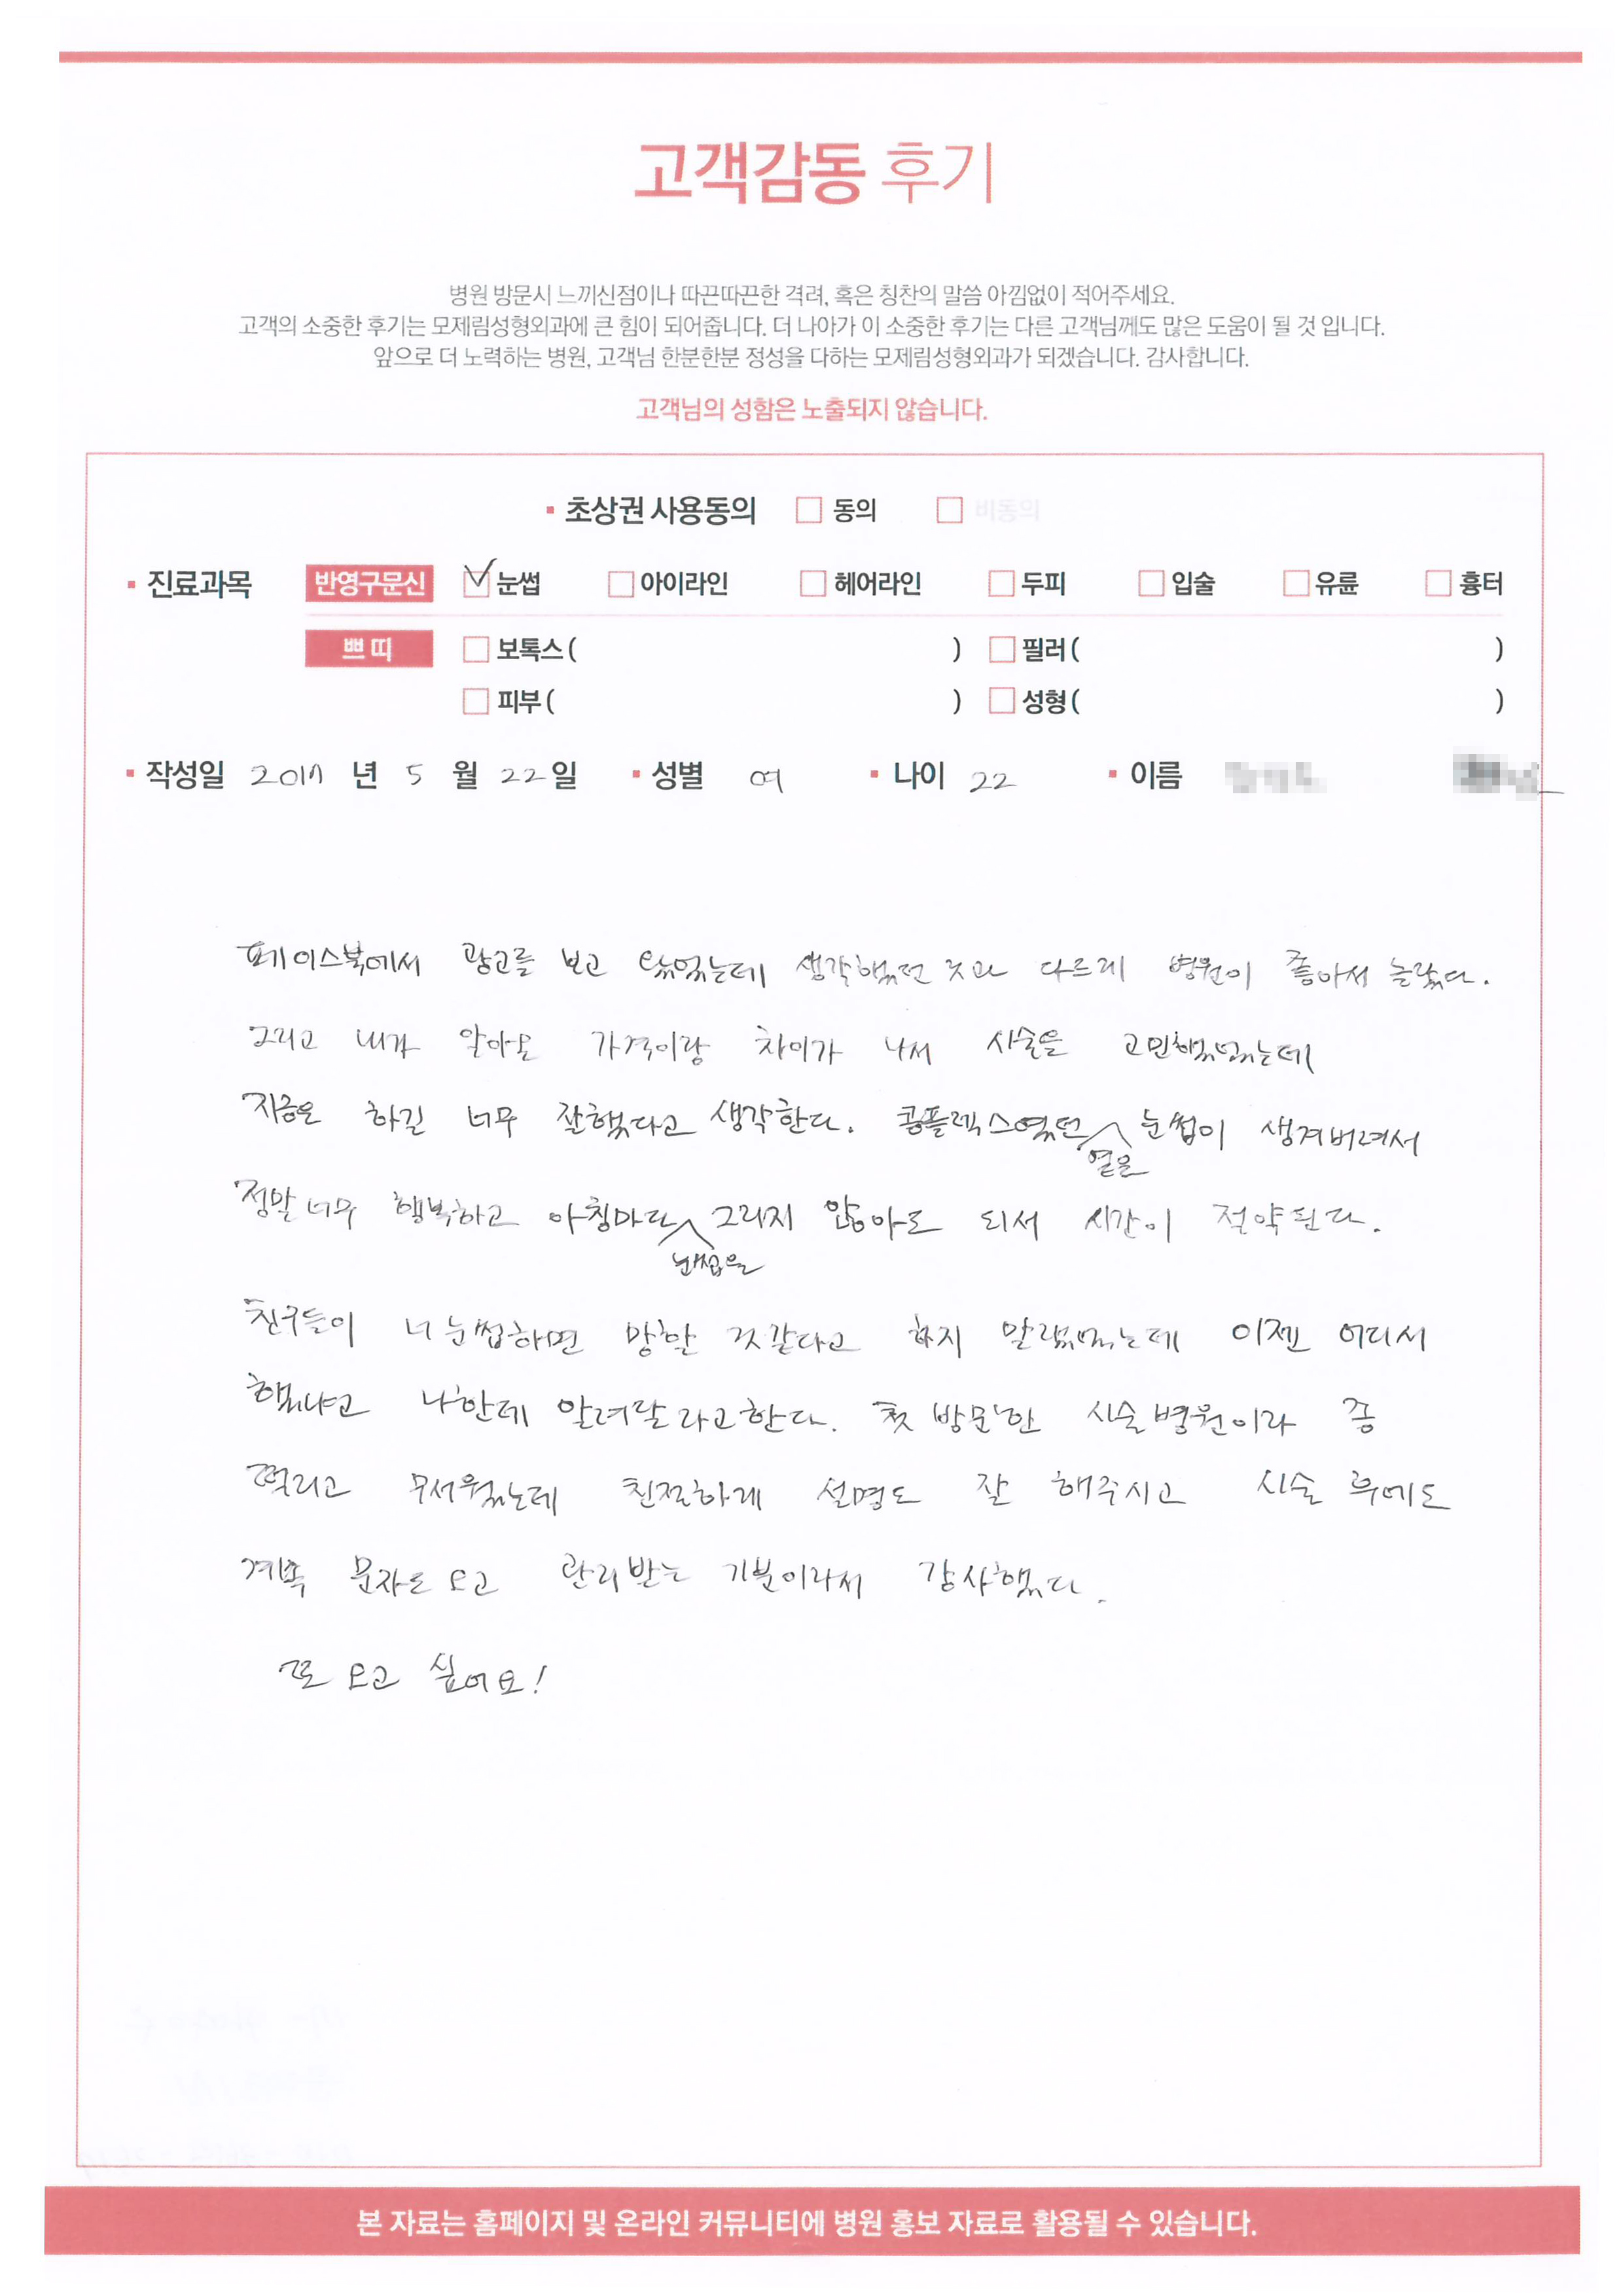 고객감동 후기
병원 방문시 느끼신점이나 따끈따끈한 격려, 혹은 칭찬의 말씀 아낌없이 적어주세요.
고객의 소중한 후기는 모제림성형외과에 큰 힘이 되어줍니다. 더 나아가 이 소중한 후기는 다른 고객님께도 많은 도움이 될 것 입니다.
앞으로 더 노력하는 병원, 고객님 한분한분 정성을 다하는 모제림성형외과가 되겠습니다. 감사합니다.
고객님의 성함은 노출되지 않습니다.
초상권 사용동의 동의 비동의
진료과목 반영구문신 눈썹 아이라인 헤어라인 두피 입술 유륜 흉터
쁘띠 보톡스 ( ) 필러 ( )
피부 ( ) 성형 ( )
작성일 2017 년 5 월 22일 성별 여 나이 22 이름
페이스북에서 광고를 보고 왔었는데 생각했던 것과 다르게 병원이 좋아서 놀랐다.
그리고 내가 알아본 가격이랑 차이가 나서 시술을 고민했었는데
지금은 하길 너무 잘했다고 생각한다. 콤플렉스였던 옅은 눈썹이 생겨버려서
정말 너무 행복하고 아침마다 눈썹을 그리지 않아도 되서 시간이 절약된다.
친구들이 너 눈썹하면 망할 것 같다고 하지 말랬었는데 이젠 어디서
했냐고 나한테 알려달라고한다. 첫 방문한 시술병원이라 좀
떨리고 무서웠는데 친절하게 설명도 잘 해주시고 시술 후에도
계속 문자도 오고 관리받는 기분이라서 감사했다.
또 오고 싶어요!
본 자료는 홈페이지 및 온라인 커뮤니티에 병원 홍보 자료로 활용될 수 있습니다.